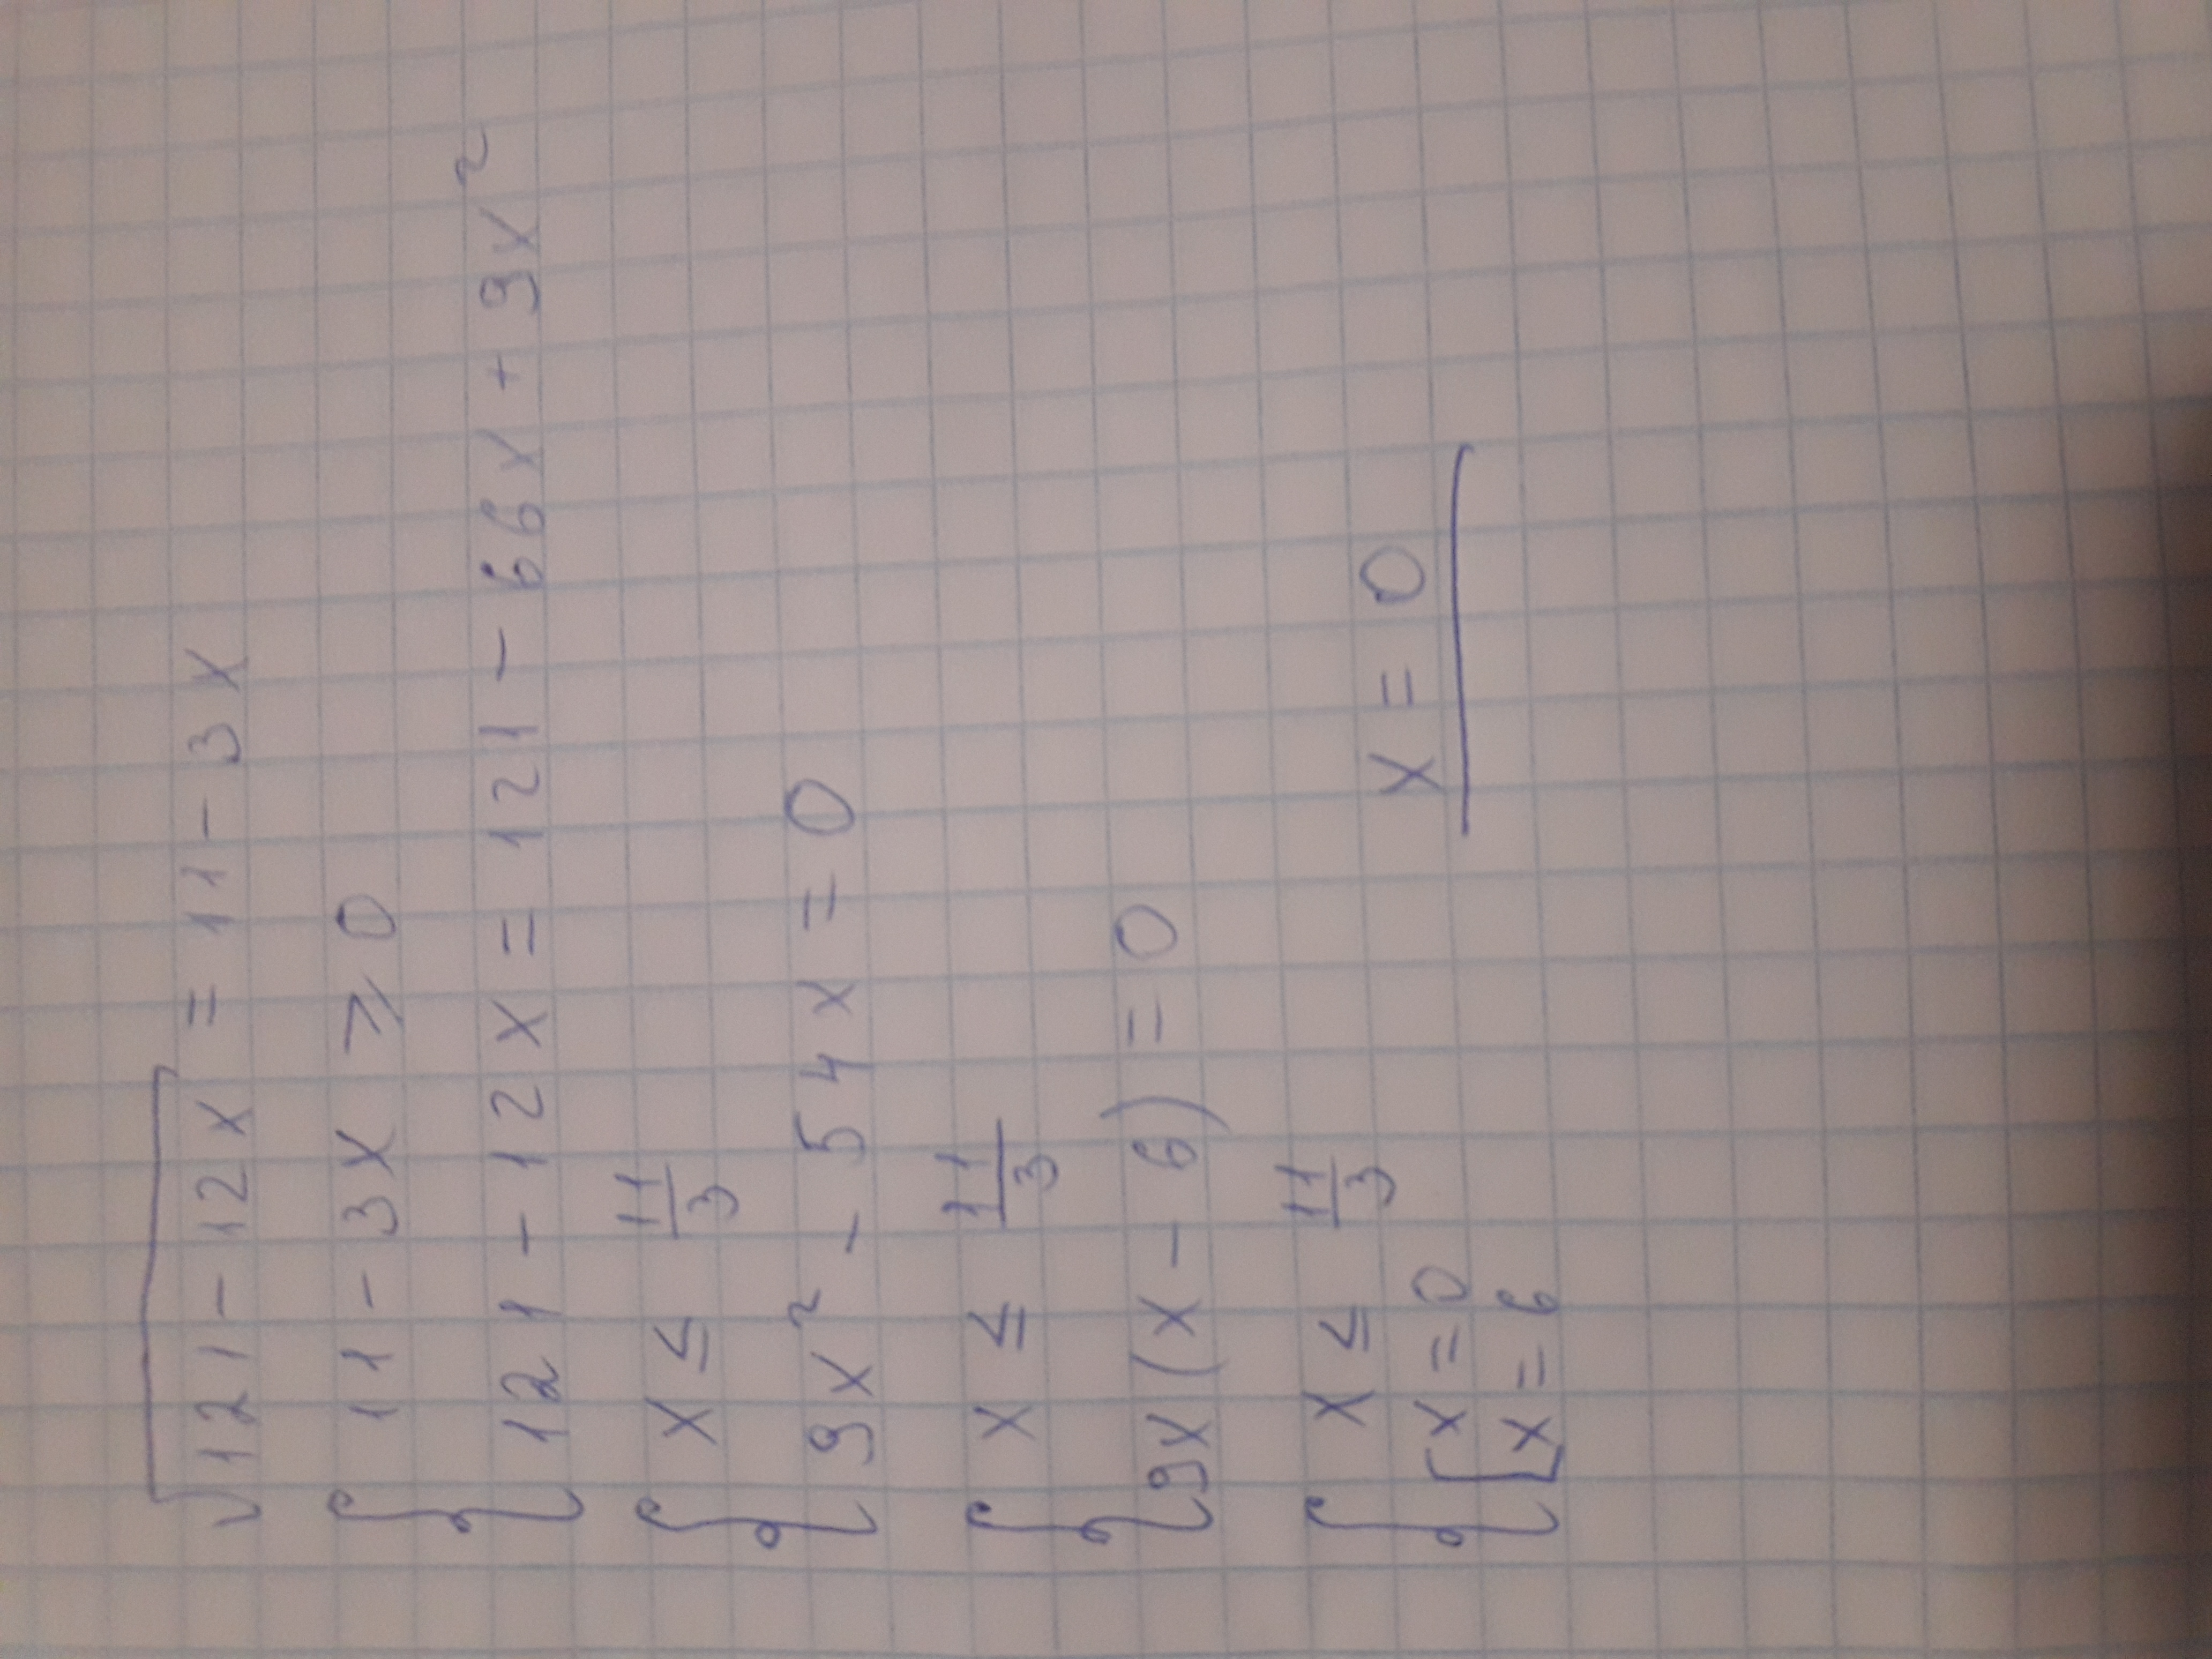 √121 - 12x = 11 - 3x
{ 11 - 3x ⩾ 0
121 - 12x = 121 - 66x + 9x²
{ x ≤ 11/3
9x² - 54x = 0
{ x ≤ 11/3
9x(x - 6) = 0
{ x ≤ 11/3
[ x = 0 x = 0
x = 6